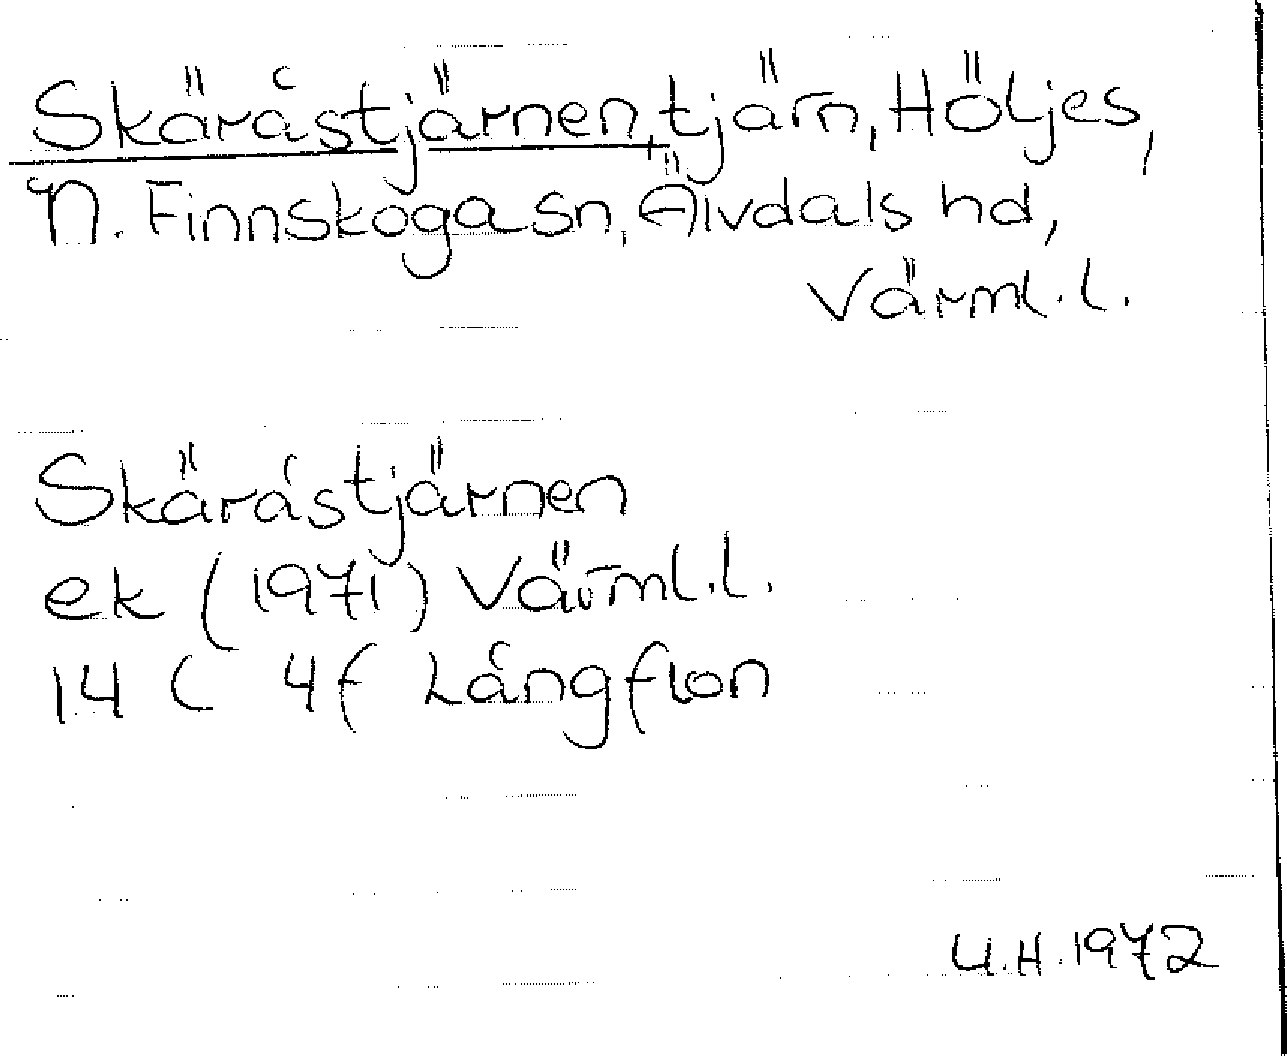 Skäråstjärnen, tjärn, Höljes,
N. Finnskoga sn, Älvdals hd,
Värml. l.
Skäråstjärnen
ek (1971) Värml. l.
14 C 4f Långflon
U.H. 1972